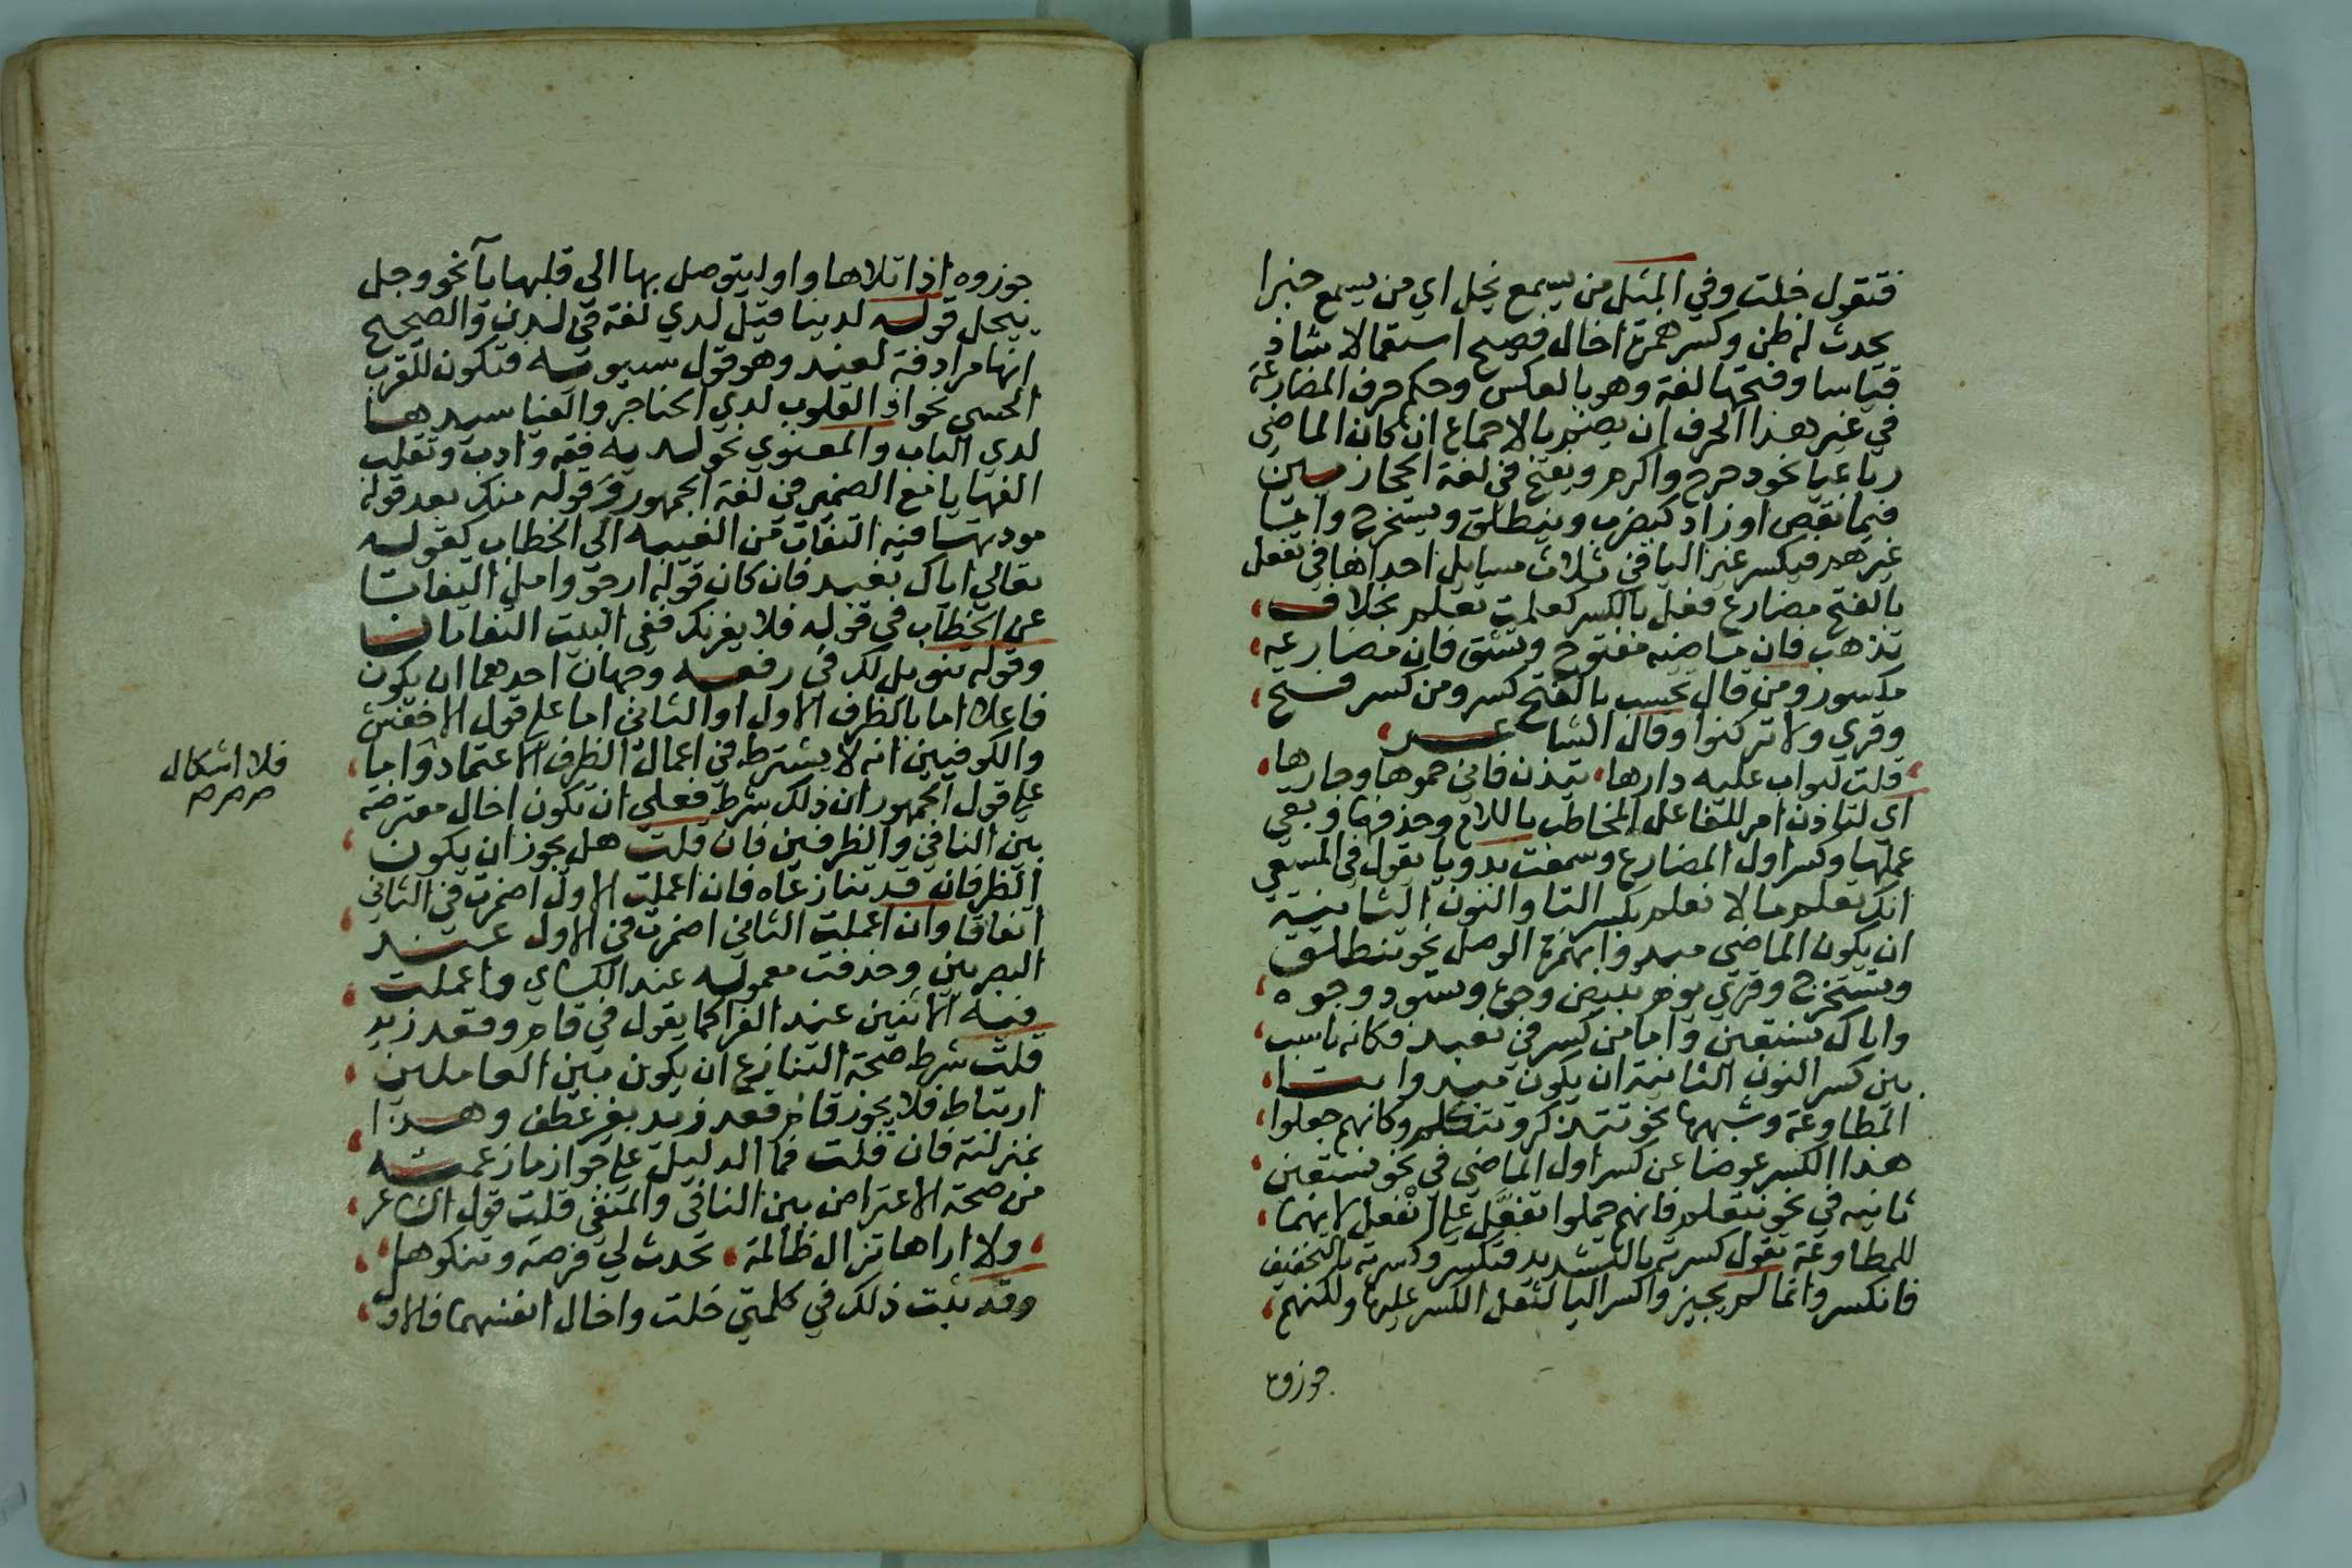 فتقول خلت وفي المثل من يسمع يخل اي من يسمع خبرا
يحدث له ظن وكسر همزة اخال فصيح استعمالا شاذ
قياسا وفتحها لغة وهو بالعكس وحكم حرف المضارعة
في غير هذا الحرف ان يضم بالاجماع ان كان الماضي
رباعيا نحو دحرج واكرم ويفتح في لغة الحجازيين
فيما نقص او زاد كيضرب وينطلق ويستخرج واما
غيرهم فيكسر غير اليا في ثلاث مسايل احداها في تفعل
بالفتح مضارع فعل بالكسر كعلمت تعلم بخلاف
تذهب فان ماضيه مفتوح وتثق فان مضارعه
مكسور ومن قال تحسب بالفتح كسر ومن كسر فتح
وقري ولا تركنوا وقال الشاعر
قلت لبواب عليه دارها تيذن فاني حموها وجارها
اي لتاذن امر للفاعل المخاطب باللام وحذفها وبقي
عملها وكسر اول المضارع وسمعت بدويا يقول في المسعي
انك تعلم ما لا نعلم بكسر التا والنون الثانية
ان يكون الماضي مبدوا بهمزة الوصل نحو تنطلق
وتستخرج وقري يوم تبيض وجوه وتسود وجوه
واياك نستعين واما من كسر في نعبد فكانه ناسب
بين كسر النون الثانية ان يكون مبدوا بتا
المطاوعة وشبهها نحو تتذكر وتتكلم وكانهم جعلوا
هذا الكسر عوضا عن كسر اول الماضي في نحو نستعين
ثانيه في نحو نتعلم فانهم حملوا تفعَّل على انْفعل لانهما
للمطاوعة تقول كسرته بالتشديد فتكسر وكسرته بالتخفيف
فانكسر وانما لم يجيزوا كسر اليا لثقل الكسر عليها ولكنهم
جوزوه
جوزوه اذا تلاها واو ليتوصل بها الى قلبها يآ نحو وجل
ييجل قوله لدينا قيل لدي لغة في لدن والصحيح
انها مرادفة لعند وهو قول سيبويه فتكون للقرب
الحسي نحو اذ القلوب لدي الحناجر والفيا سيدها
لدي الباب والمعنوي نحو لديه فقه وادب وتقلب
الفها يا مع الضمير في لغة الجمهور وقوله منك بعد قوله
مودتها فيه التفات من الغيبه الى الخطاب كقوله
تعالي اياك نعبد فان كان قوله ارجو وامل التفاتا
عن الخطاب في قوله فلا يغرنك ففي البيت التفاتان
وقوله تنويل لك في رفعه وجهان احدهما ان يكون
فاعلا اما بالظرف الاول او الثاني اما على قول الاخفش
والكوفيين انه لا يشترط في اعمال الظرف الاعتماد واما
فلا اشكال
صح صح صح
على قول الجمهور ان ذلك شرط فعلي ان تكون اخال معترضة
بين النافي والظرفين فان قلت هل يجوز ان يكون
الظرفان قد تنازعاه فان اعملت الاول اضمرت في الثاني
اتفاقا وان اعملت الثاني اضمرت في الاول عند
البصريين وحذفت معموله عند الكساي واعملت
فيه الاثنين عند الفرا كما يقول في قام وقعد زيد
قلت شرط صحة التنازع ان يكون بين العاملين
ارتباط فلا يجوز قام قعد زيد بغير عطف وهذا
بمنزلته فان قلت فما الدليل على جواز ما زعمته
من صحة الاعتراض بين النافي والمنفي قلت قول الشاعر
ولا اراها تزال ظالمة تحدث لي قرحة وتنكوها
وقد ثبت ذلك في كلمتي خلت واخال انفسهما فالاو